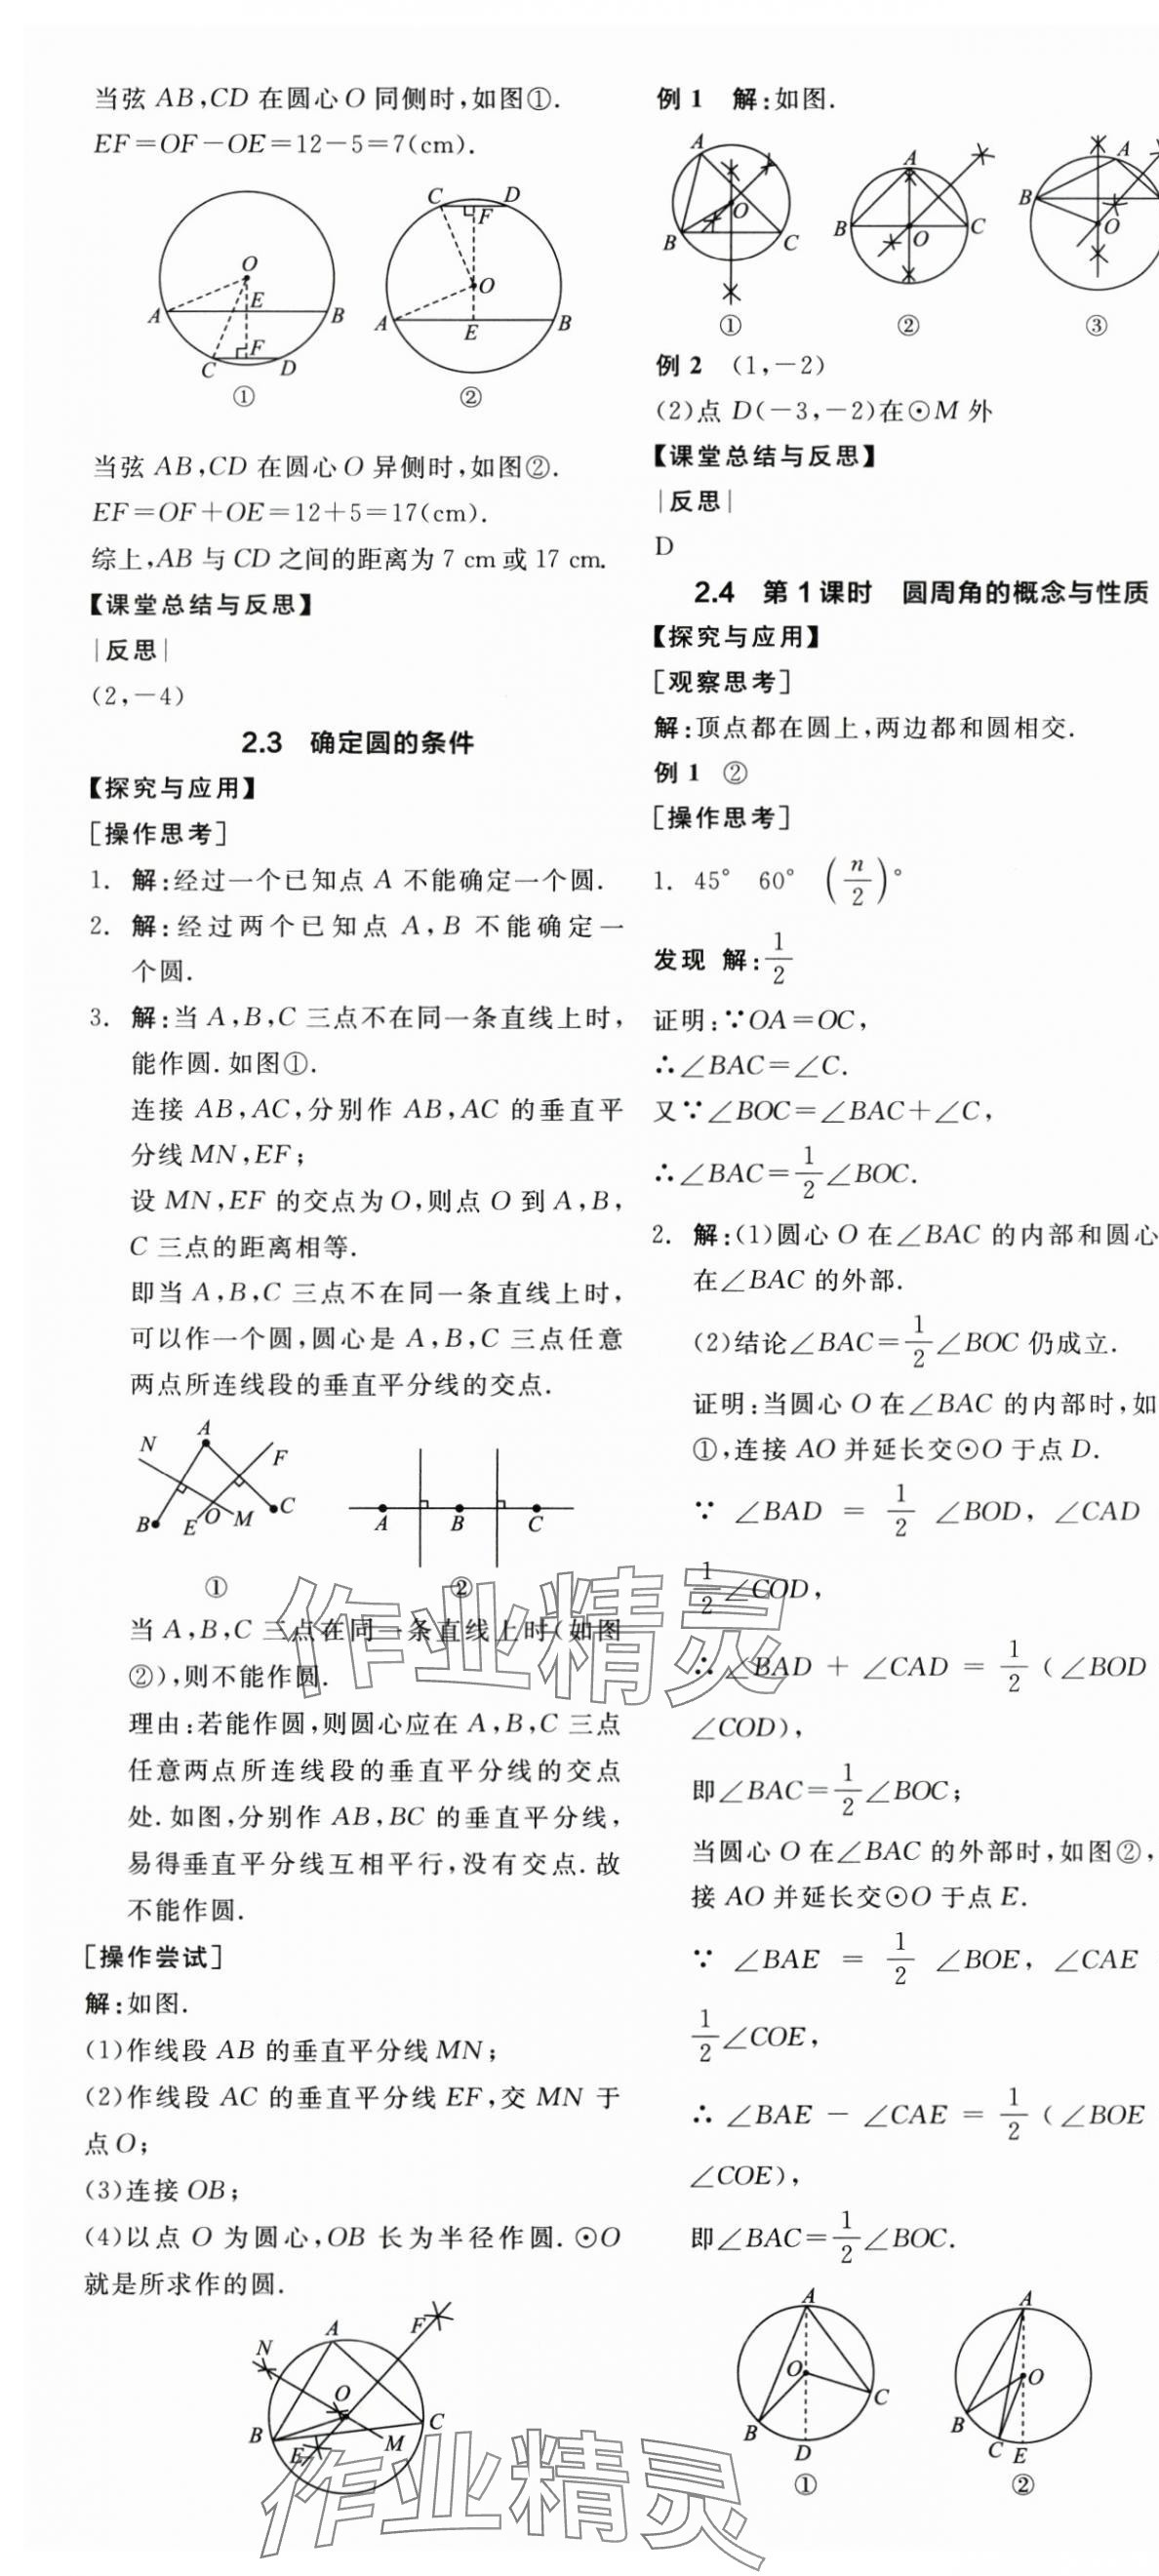 当弦 AB,CD 在圆心 O 同侧时,如图①.
EF=OF-OE=12-5=7(cm).
O
A
E
B
C
F
D
①
C
D
F
O
A
E
B
②
当弦 AB,CD 在圆心 O 异侧时,如图②.
EF=OF+OE=12+5=17(cm).
综上,AB 与 CD 之间的距离为 7 cm 或 17 cm.
【课堂总结与反思】
|反思|
(2,-4)
2.3 确定圆的条件
【探究与应用】
[操作思考]
1. 解:经过一个已知点 A 不能确定一个圆.
2. 解:经过两个已知点 A,B 不能确定一
个圆.
3. 解:当 A,B,C 三点不在同一条直线上时,
能作圆.如图①.
连接 AB,AC,分别作 AB,AC 的垂直平
分线 MN,EF;
设 MN,EF 的交点为 O,则点 O 到 A,B,
C 三点的距离相等.
即当 A,B,C 三点不在同一条直线上时,
可以作一个圆,圆心是 A,B,C 三点任意
两点所连线段的垂直平分线的交点.
N
A
F
B
E
O
M
C
①
A
B
C
②
当 A,B,C 三点在同一条直线上时(如图
②),则不能作圆.
理由:若能作圆,则圆心应在 A,B,C 三点
任意两点所连线段的垂直平分线的交点
处.如图,分别作 AB,BC 的垂直平分线,
易得垂直平分线互相平行,没有交点.故
不能作圆.
[操作尝试]
解:如图.
(1)作线段 AB 的垂直平分线 MN;
(2)作线段 AC 的垂直平分线 EF,交 MN 于
点 O;
(3)连接 OB;
(4)以点 O 为圆心,OB 长为半径作圆.⊙O
就是所求作的圆.
N
A
F
O
B
E
M
C
例 1 解:如图.
A
O
B
C
①
A
B
O
C
②
A
B
O
③
例 2 (1,-2)
(2)点 D(-3,-2)在⊙M 外
【课堂总结与反思】
|反思|
D
2.4 第 1 课时 圆周角的概念与性质
【探究与应用】
[观察思考]
解:顶点都在圆上,两边都和圆相交.
例 1 ②
[操作思考]
1. 45° 60° (n/2)°
发现 解:1/2
证明:∵OA=OC,
∴∠BAC=∠C.
又∵∠BOC=∠BAC+∠C,
∴∠BAC=1/2∠BOC.
2. 解:(1)圆心 O 在∠BAC 的内部和圆心
在∠BAC 的外部.
(2)结论∠BAC=1/2∠BOC 仍成立.
证明:当圆心 O 在∠BAC 的内部时,如
①,连接 AO 并延长交⊙O 于点 D.
∵ ∠BAD = 1/2 ∠BOD, ∠CAD
1/2∠COD,
∴ ∠BAD + ∠CAD = 1/2 (∠BOD
∠COD),
即∠BAC=1/2∠BOC;
当圆心 O 在∠BAC 的外部时,如图②,
接 AO 并延长交⊙O 于点 E.
∵ ∠BAE = 1/2 ∠BOE, ∠CAE
1/2∠COE,
∴ ∠BAE - ∠CAE = 1/2 (∠BOE
∠COE),
即∠BAC=1/2∠BOC.
A
O
B
C
D
①
A
O
B
C
E
②
作业精灵
作业精灵